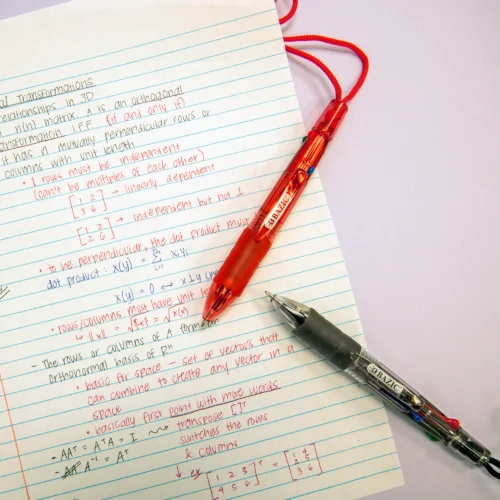 al Transformations
relationships in 3D
n(n) matrix A is an orthogonal
ansformation IFF (if and only if)
it has n mutually perpendicular rows or
columns with unit length
• ⊥ rows must be independent
(can't be multiples of each other)
[1 2
3 6] → linearly dependent
[1 2
2 6] → independent but not ⊥
• to be perpendicular, the dot product must
dot product: x(y) = Σ xiyi
i=1
x(y) = 0 ↔ x⊥y
• rows/columns must have unit
↳ ||x|| = = √x(x)
- The rows or columns of A form an
orthonormal basis of Rⁿ
• basic for space - set of vectors that
can combine to create any vector in a
space
• basically first point with more words
- AAᵀ = AᵀA = I ~> transpose []ᵀ
switches the rows
& columns
- A⁻¹ = Aᵀ
↓ ex
[1 2 3
4 5 6]ᵀ = [1 4
2 5
3 6]
BAZIC
BAZIC